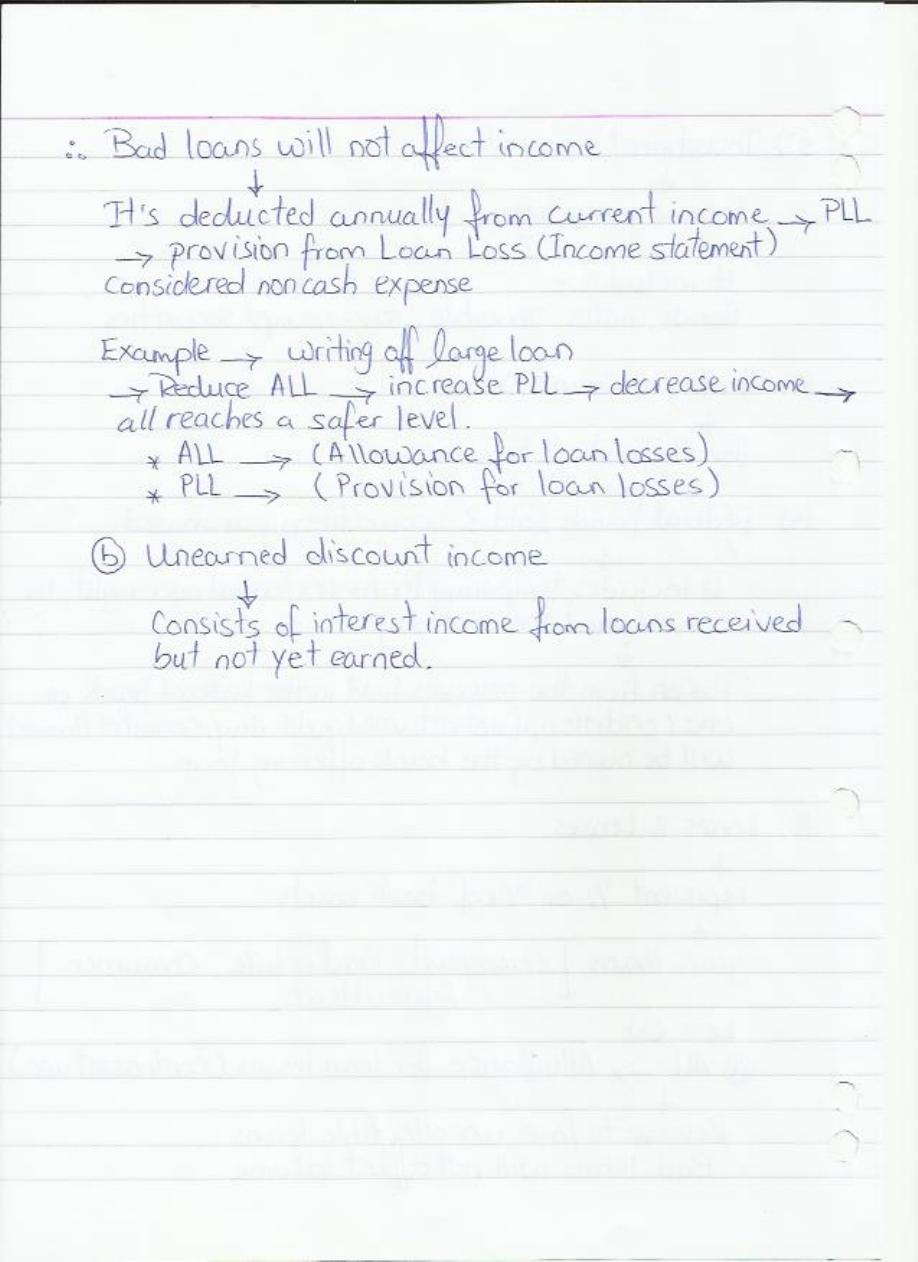 ∴ Bad loans will not affect income
↓
It's deducted annually from current income → PLL
→ provision from Loan Loss (Income statement)
Considered noncash expense
Example → writing off large loan
→ Reduce ALL → increase PLL → decrease income →
all reaches a safer level.
* ALL → (Allowance for loan losses)
* PLL → (Provision for loan losses)
ⓑ Unearned discount income
↓
Consists of interest income from loans received
but not yet earned.